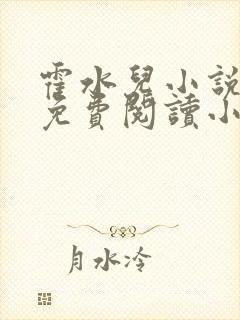 霍水兒小說
免費閱讀小
月水冷